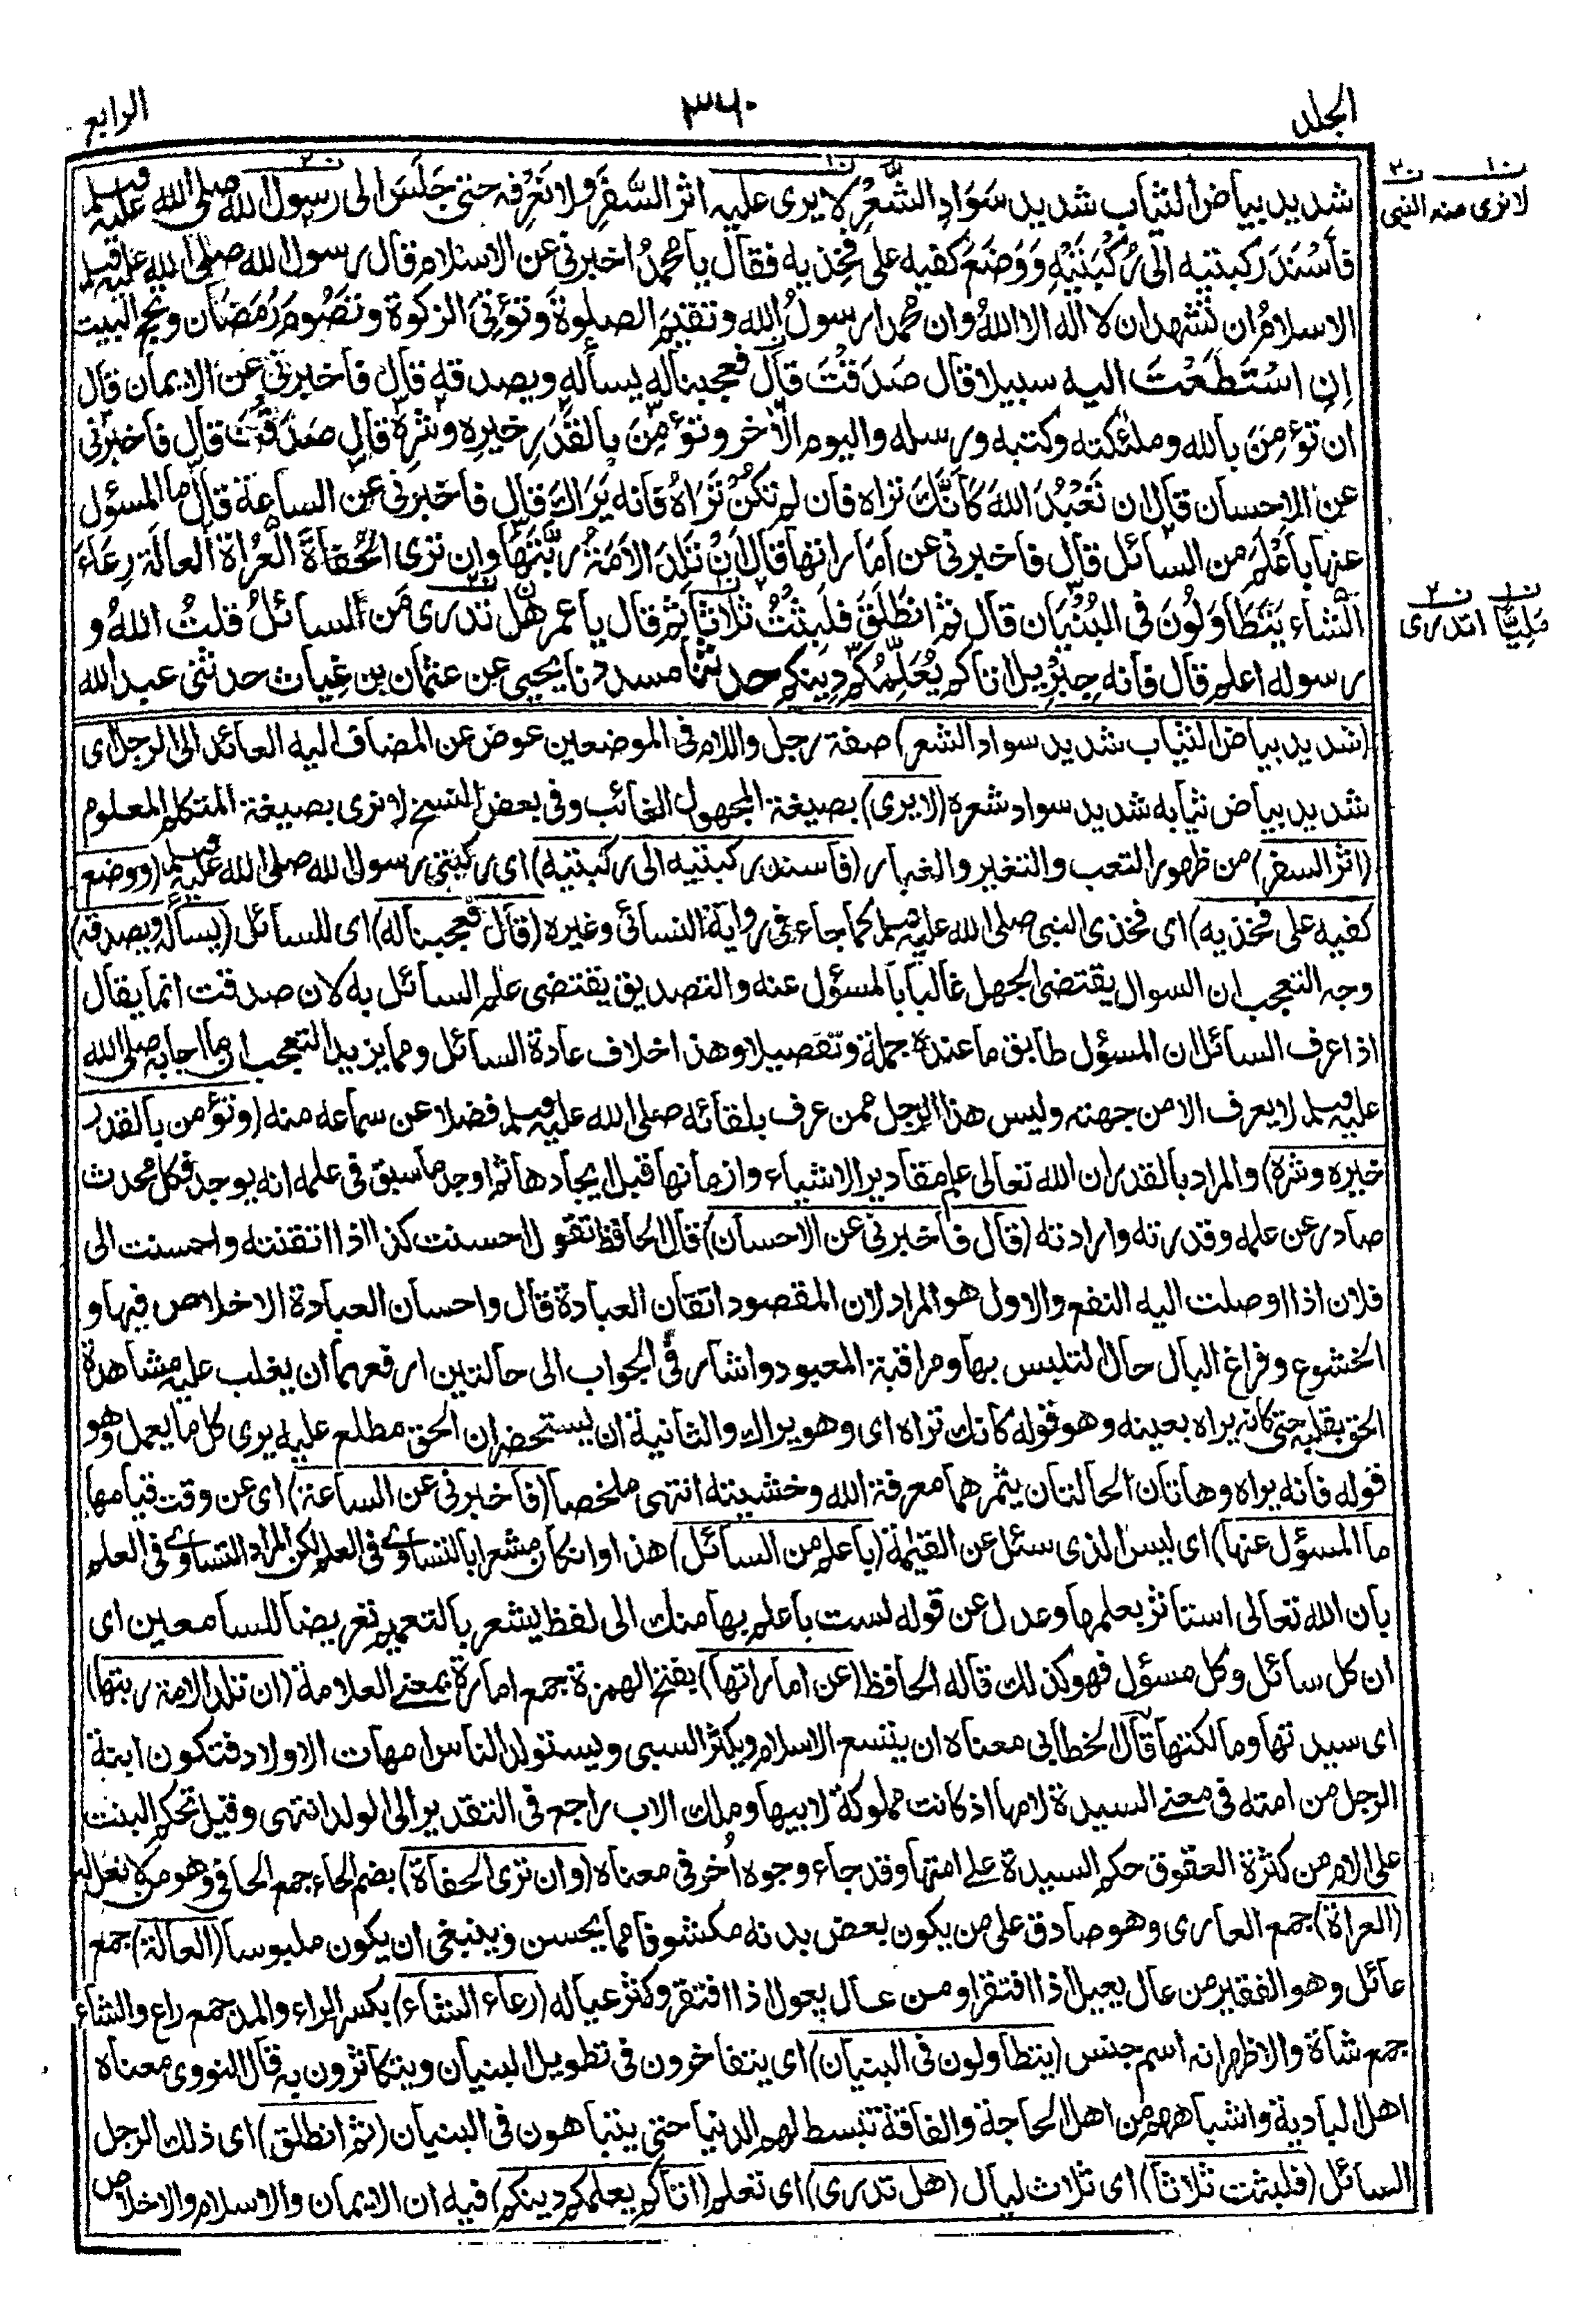 الجلد
٣٦٠
الرابع
شديد بياض الثياب شديد سَوَادِ الشَّعْرِ لا يرى عليه اثر السَّفَرِ ولا نَعْرِفه حتى جَلَسَ الى رسول الله صلى الله عليه وسلم
فأَسْنَدَ ركبتيه الى رُكْبَتَيْهِ وَوَضَعَ كفيه على فَخِذيه فقال يا محمدُ اخبرنى عن الاسلام قال رسول الله صلى الله عليه وسلم
الاسلامُ ان تشهد ان لا اله الا اللهُ وان محمدا رسولُ الله وتقيمَ الصلوةَ وتؤتىَ الزكوة وتصُومَ رَمَضَان وتحج البيت
اِنِ اسْتَطَعْتَ اليه سبيلا قال صَدَقْتَ قال فعجبنا له يسأله ويصدقه قال فاخبرنى عن الايمان قال
ان تؤمِنَ بالله وملئكته وكتبه ورسله واليوم الآخر وتؤمِنَ بالقَدَرِ خيرِه وشرِّه قال صَدَقْتَ قال فاخبرنى
عن الاحسان قال ان تَعْبُدَ اللهَ كَأَنَّكَ تراه فان لم تكُنْ تَرَاهُ فانه يَرَاكَ قال فاخبرنى عن الساعة قال ما المسؤل
عنها بأَعْلَمَ من السائل قال فاخبرنى عن أمَاراتها قال اَنْ تَلِدَ الاَمَةُ ربَّتَهَا وان ترى الحُفاةَ العُراةَ العالةَ رِعَاءَ
الشاء يَتَطَاوَلُونَ فى البُنْيَان قال ثم انطَلَقَ فلبِثْتُ ثلاثا ثم قال يا عمر هل تَدرى مَن السائلُ قلتُ اللهُ و
رسوله اعلم قال فانه جِبْرِيل اتاكم يُعَلِّمُكم دِينكم حدثنا مسدد نا يحيى عن عثمان بن غِياث حدثنى عبد الله
ن١ ن٢
لا نرى منه النبى
ن١ ن٢
مَلِيًّا اتدرى
(شديد بياض الثياب شديد سواد الشعر) صفة رجل واللام فى الموضعين عوض عن المضاف اليه العائد الى الرجل اى
شديد بياض ثيابه شديد سواد شعره (لا يرى) بصيغة المجهول الغائب وفى بعض النسخ لا نرى بصيغة المتكلم المعلوم
(اثر السفر) من ظهور التعب والتغير والغبار (فاسند ركبتيه الى ركبتيه) اى ركبتى رسول الله صلى الله عليه وسلم (ووضع
كفيه على فخذيه) اى فخذى النبى صلى الله عليه وسلم كما جاء فى رواية النسائى وغيره (قال فعجبنا له) اى للسائل (يسأله ويصدقه)
وجه التعجب ان السوال يقتضى الجهل غالبا بالمسؤل عنه والتصديق يقتضى علم السائل به لان صدقت انما يقال
اذا عرف السائل ان المسؤل طابق ما عنده جملة وتفصيلا وهذا خلاف عادة السائل ومما يزيد التعجب ان ما اجابه صلى الله
عليه وسلم لا يعرف الا من جهته وليس هذا الرجل ممن عرف بلقائه صلى الله عليه وسلم فضلا عن سماعه منه (وتؤمن بالقدر
خيره وشره) والمراد بالقدر ان الله تعالى علم مقادير الاشياء وازمانها قبل ايجادها ثم اوجد ما سبق فى علمه انه يوجد فكل محدث
صادر عن علمه وقدرته وارادته (قال فاخبرنى عن الاحسان) قال الحافظ تقول احسنت كذا اذا اتقنته واحسنت الى
فلان اذا اوصلت اليه النفع والاول هو المراد لان المقصود اتقان العبادة قال واحسان العبادة الاخلاص فيها و
الخشوع وفراغ البال حال التلبس بها ومراقبة المعبود واشار فى الجواب الى حالتين ارفعهما ان يغلب عليه مشاهدة
الحق بقلبه حتى كانه يراه بعينه وهو قوله كانك تراه اى وهو يراك والثانية ان يستحضر ان الحق مطلع عليه يرى كل ما يعمل وهو
قوله فانه يراه وهاتان الحالتان يثمرهما معرفة الله وخشيته انتهى ملخصا (فاخبرنى عن الساعة) اى عن وقت قيامها
ما المسؤل عنها) اى ليس الذى سئل عن القيٰمة (باعلم من السائل) هذا وان كان مشعرا بالتساوى فى العلم لكن المراد التساوى فى العلم
بان الله تعالى استاثر بعلمها وعدل عن قوله لست باعلم بها منك الى لفظ يشعر بالتعميم تعريضا للسامعين اى
ان كل سائل وكل مسؤل فهو كذلك قاله الحافظ (عن اماراتها) بفتح الهمزة جمع امارة بمعنى العلامة (ان تلد الامة ربتها)
اى سيدتها ومالكتها قال الخطابى معناه ان يتسع الاسلام ويكثر السبى ويستولد الناس امهات الاولاد فتكون ابنة
الرجل من امته فى معنى السيدة لامها اذ كانت مملوكة لابيها وملك الاب راجع فى التقدير الى الولد انتهى وقيل تحكم البنت
على الام من كثرة العقوق حكم السيدة على امتها وقد جاء وجوه اُخر فى معناه (وان ترى الحفاة) بضم الحاء جمع الحافى وهو من لا نعل له
(العراة) جمع العارى وهو صادق على من يكون بعض بدنه مكشوفا مما يحسن وينبغى ان يكون ملبوسا (العالة) جمع
عائل وهو الفقير من عال يعيل اذا افتقر او من عال يعول اذا افتقر وكثر عياله (رعاء الشاء) بكسر الراء والمد جمع راع والشاء
جمع شاة والاظهر انه اسم جنس (يتطاولون فى البنيان) اى يتفاخرون فى تطويل البنيان ويتكاثرون به قال النووى معناه
اهل البادية واشباههم من اهل الحاجة والفاقة تبسط لهم الدنيا حتى يتباهون فى البنيان (ثم انطلق) اى ذلك الرجل
السائل (فلبثت ثلاثا) اى ثلاث ليال (هل تدرى) اى تعلم (اتاكم يعلمكم دينكم) فيه ان الايمان والاسلام والاخلاص